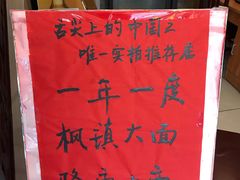 舌尖上的中国2
唯一实拍推荐店
一年一度
枫镇大面